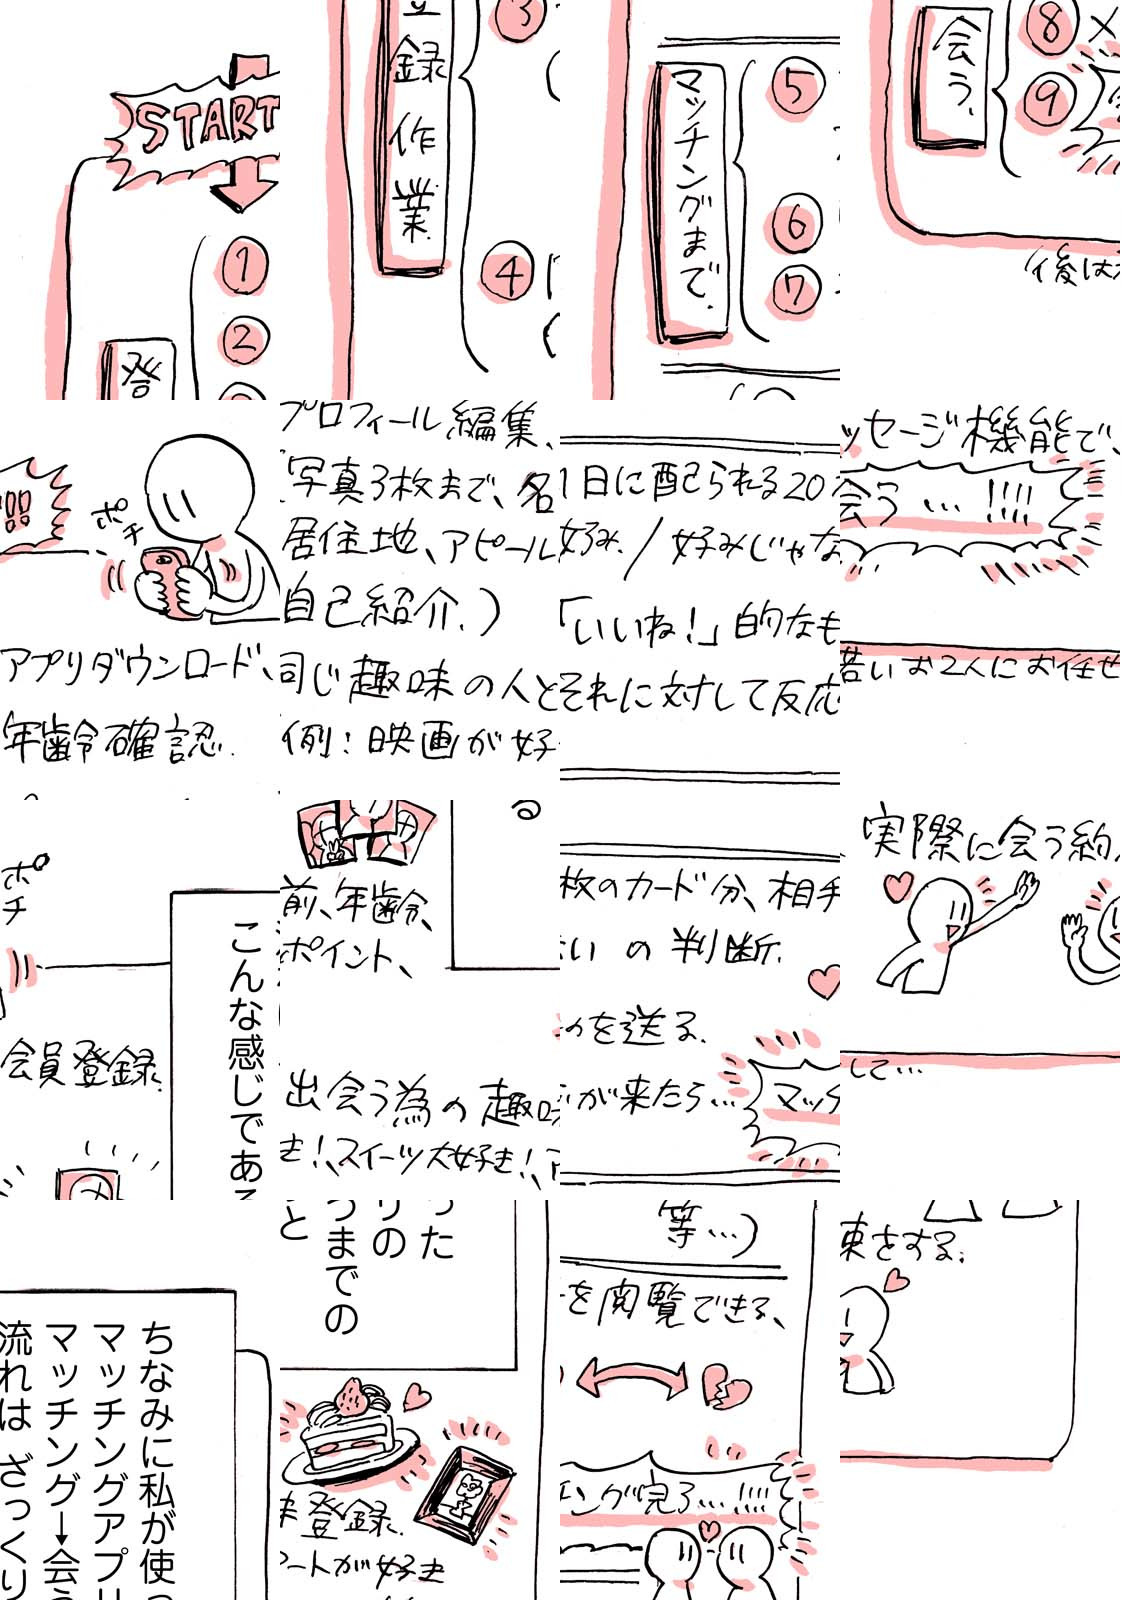 START
①
②
登
録
作
業
③
④
マッチングまで.
⑤
⑥
⑦
会う.
⑧
⑨
後は
ポチ
アプリダウンロード、
年齢確認.
プロフィール編集、
写真3枚まで、名
居住地、アピール
自己紹介.)
同じ趣味の人と
例:映画が好
1日に配られる20
好み./好みじゃな
「いいね!」的なも
それに対して反応
ッセージ機能で、
会う…!!!!
若いお2人にお任せ
ポチ
会員登録.
こんな感じである
る
前、年齢、
ポイント、
出会う為の趣味
き!、スイーツ大好き!、
枚のカード分、相手
いの判断.
のを送る.
が来たら…
マッチ
実際に会う約
して…
ちなみに私が使っ
マッチングアプリ
マッチング→会う
流れは ざっくり
った
リの
うまでの
と
登録.
アートが好き
等…)
を閲覧できる、
ング完了…!!!!
束をする.